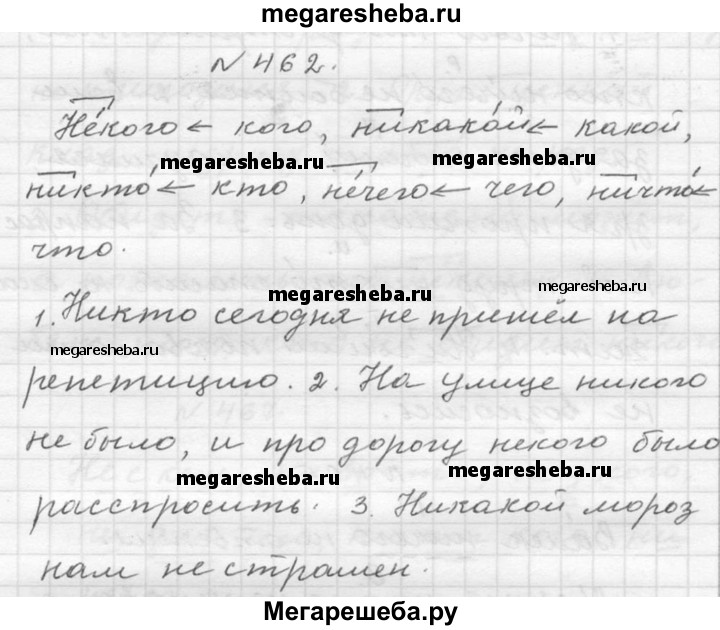 megaresheba.ru
№462.
Не́кого ← кого, никако́й ← какой,
megaresheba.ru megaresheba.ru
никто́ ← кто, не́чего ← чего, ничто́ ←
что.
megaresheba.ru megaresheba.ru
1. Никто сегодня не пришёл на
megaresheba.ru
репетицию. 2. На улице никого
не было, и про дорогу некого было
megaresheba.ru megaresheba.ru
расспросить. 3. Никакой мороз
нам не страшен.
Мегарешеба.ру